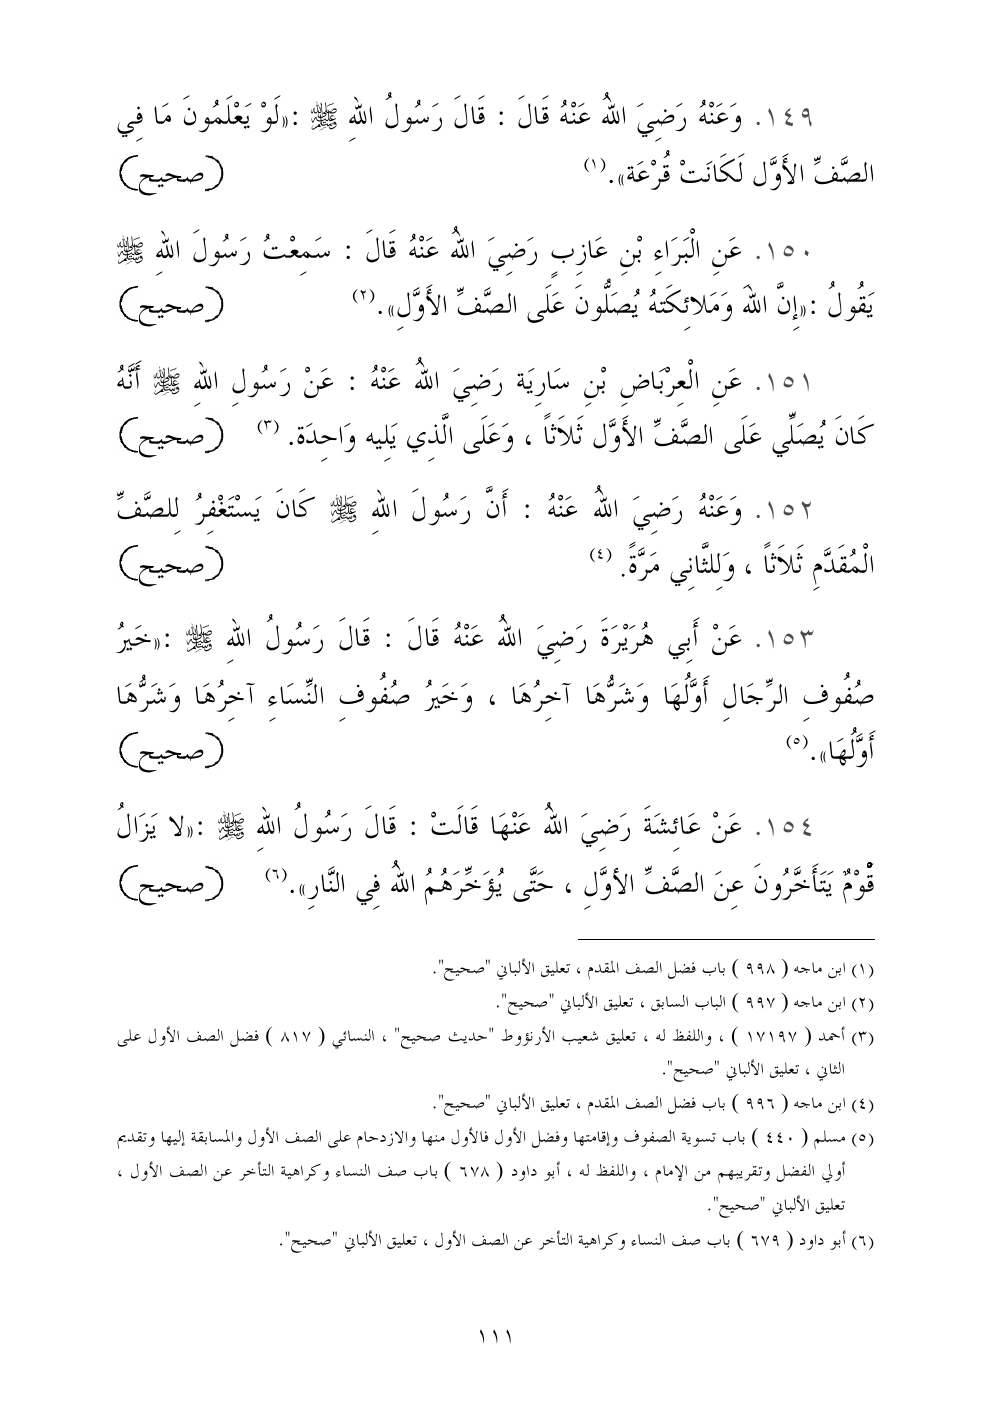 ١٤٩. وَعَنْهُ رَضِيَ اللهُ عَنْهُ قَالَ : قَالَ رَسُولُ اللهِ ﷺ :«لَوْ يَعْلَمُونَ مَا فِي
الصَّفِّ الأَوَّلِ لَكَانَتْ قُرْعَة».(١) (صحيح)
١٥٠. عَنِ الْبَرَاءِ بْنِ عَازِبٍ رَضِيَ اللهُ عَنْهُ قَالَ : سَمِعْتُ رَسُولَ اللهِ ﷺ
يَقُولُ :«إِنَّ اللهَ وَمَلائِكَتهُ يُصَلُّونَ عَلَى الصَّفِّ الأَوَّلِ».(٢) (صحيح)
١٥١. عَنِ الْعِرْبَاضِ بْنِ سَارِيَة رَضِيَ اللهُ عَنْهُ : عَنْ رَسُولِ اللهِ ﷺ أَنَّهُ
كَانَ يُصَلِّي عَلَى الصَّفِّ الأَوَّلِ ثَلاَثاً ، وَعَلَى الَّذِي يَلِيه وَاحِدَة. (٣) (صحيح)
١٥٢. وَعَنْهُ رَضِيَ اللهُ عَنْهُ : أَنَّ رَسُولَ اللهِ ﷺ كَانَ يَسْتَغْفِرُ لِلصَّفِّ
الْمُقَدَّمِ ثَلاَثاً ، وَلِلثَّانِي مَرَّةً. (٤) (صحيح)
١٥٣. عَنْ أَبِي هُرَيْرَةَ رَضِيَ اللهُ عَنْهُ قَالَ : قَالَ رَسُولُ اللهِ ﷺ :«خَيرُ
صُفُوفِ الرِّجَالِ أَوَّلُهَا وَشَرُّهَا آخِرُهَا ، وَخَيرُ صُفُوفِ النِّسَاءِ آخِرُهَا وَشَرُّهَا
أَوَّلُهَا».(٥) (صحيح)
١٥٤. عَنْ عَائِشَةَ رَضِيَ اللهُ عَنْهَا قَالَتْ : قَالَ رَسُولُ اللهِ ﷺ :«لا يَزَالُ
قَوْمٌ يَتَأَخَّرُونَ عِنَ الصَّفِّ الأوَّلِ ، حَتَّى يُؤَخِّرَهُمُ اللهُ فِي النَّارِ».(٦) (صحيح)
(١) ابن ماجه ( ٩٩٨ ) باب فضل الصف المقدم ، تعليق الألباني "صحيح".
(٢) ابن ماجه ( ٩٩٧ ) الباب السابق ، تعليق الألباني "صحيح".
(٣) أحمد ( ١٧١٩٧ ) ، واللفظ له ، تعليق شعيب الأرنؤوط "حديث صحيح" ، النسائي ( ٨١٧ ) فضل الصف الأول على
الثاني ، تعليق الألباني "صحيح".
(٤) ابن ماجه ( ٩٩٦ ) باب فضل الصف المقدم ، تعليق الألباني "صحيح".
(٥) مسلم ( ٤٤٠ ) باب تسوية الصفوف وإقامتها وفضل الأول فالأول منها والازدحام على الصف الأول والمسابقة إليها وتقديم
أولي الفضل وتقريبهم من الإمام ، واللفظ له ، أبو داود ( ٦٧٨ ) باب صف النساء وكراهية التأخر عن الصف الأول ،
تعليق الألباني "صحيح".
(٦) أبو داود ( ٦٧٩ ) باب صف النساء وكراهية التأخر عن الصف الأول ، تعليق الألباني "صحيح".
١١١